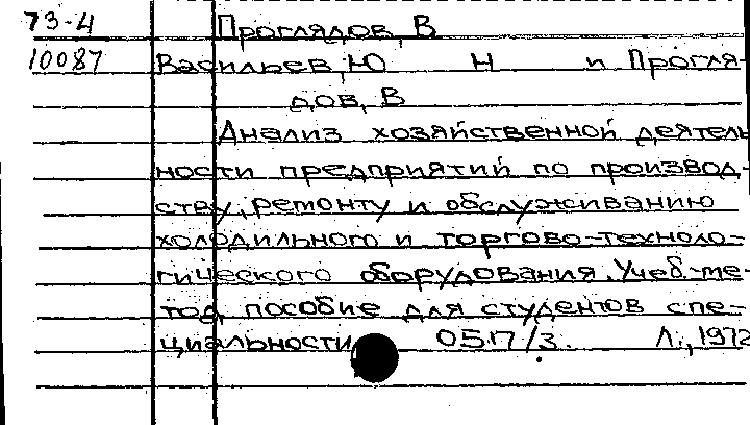 73-4 Проглядов, В
10087 Васильев, Ю Н и Прогля-
дов, В
Анализ хозяйственной деятель
ности предприятий по производ-
ству, ремонту и обслуживанию
холодильного и торгово-техноло-
гического оборудования. Учеб.-ме-
тод пособие для студентов спе-
циальности 0517/3. Л., 1972